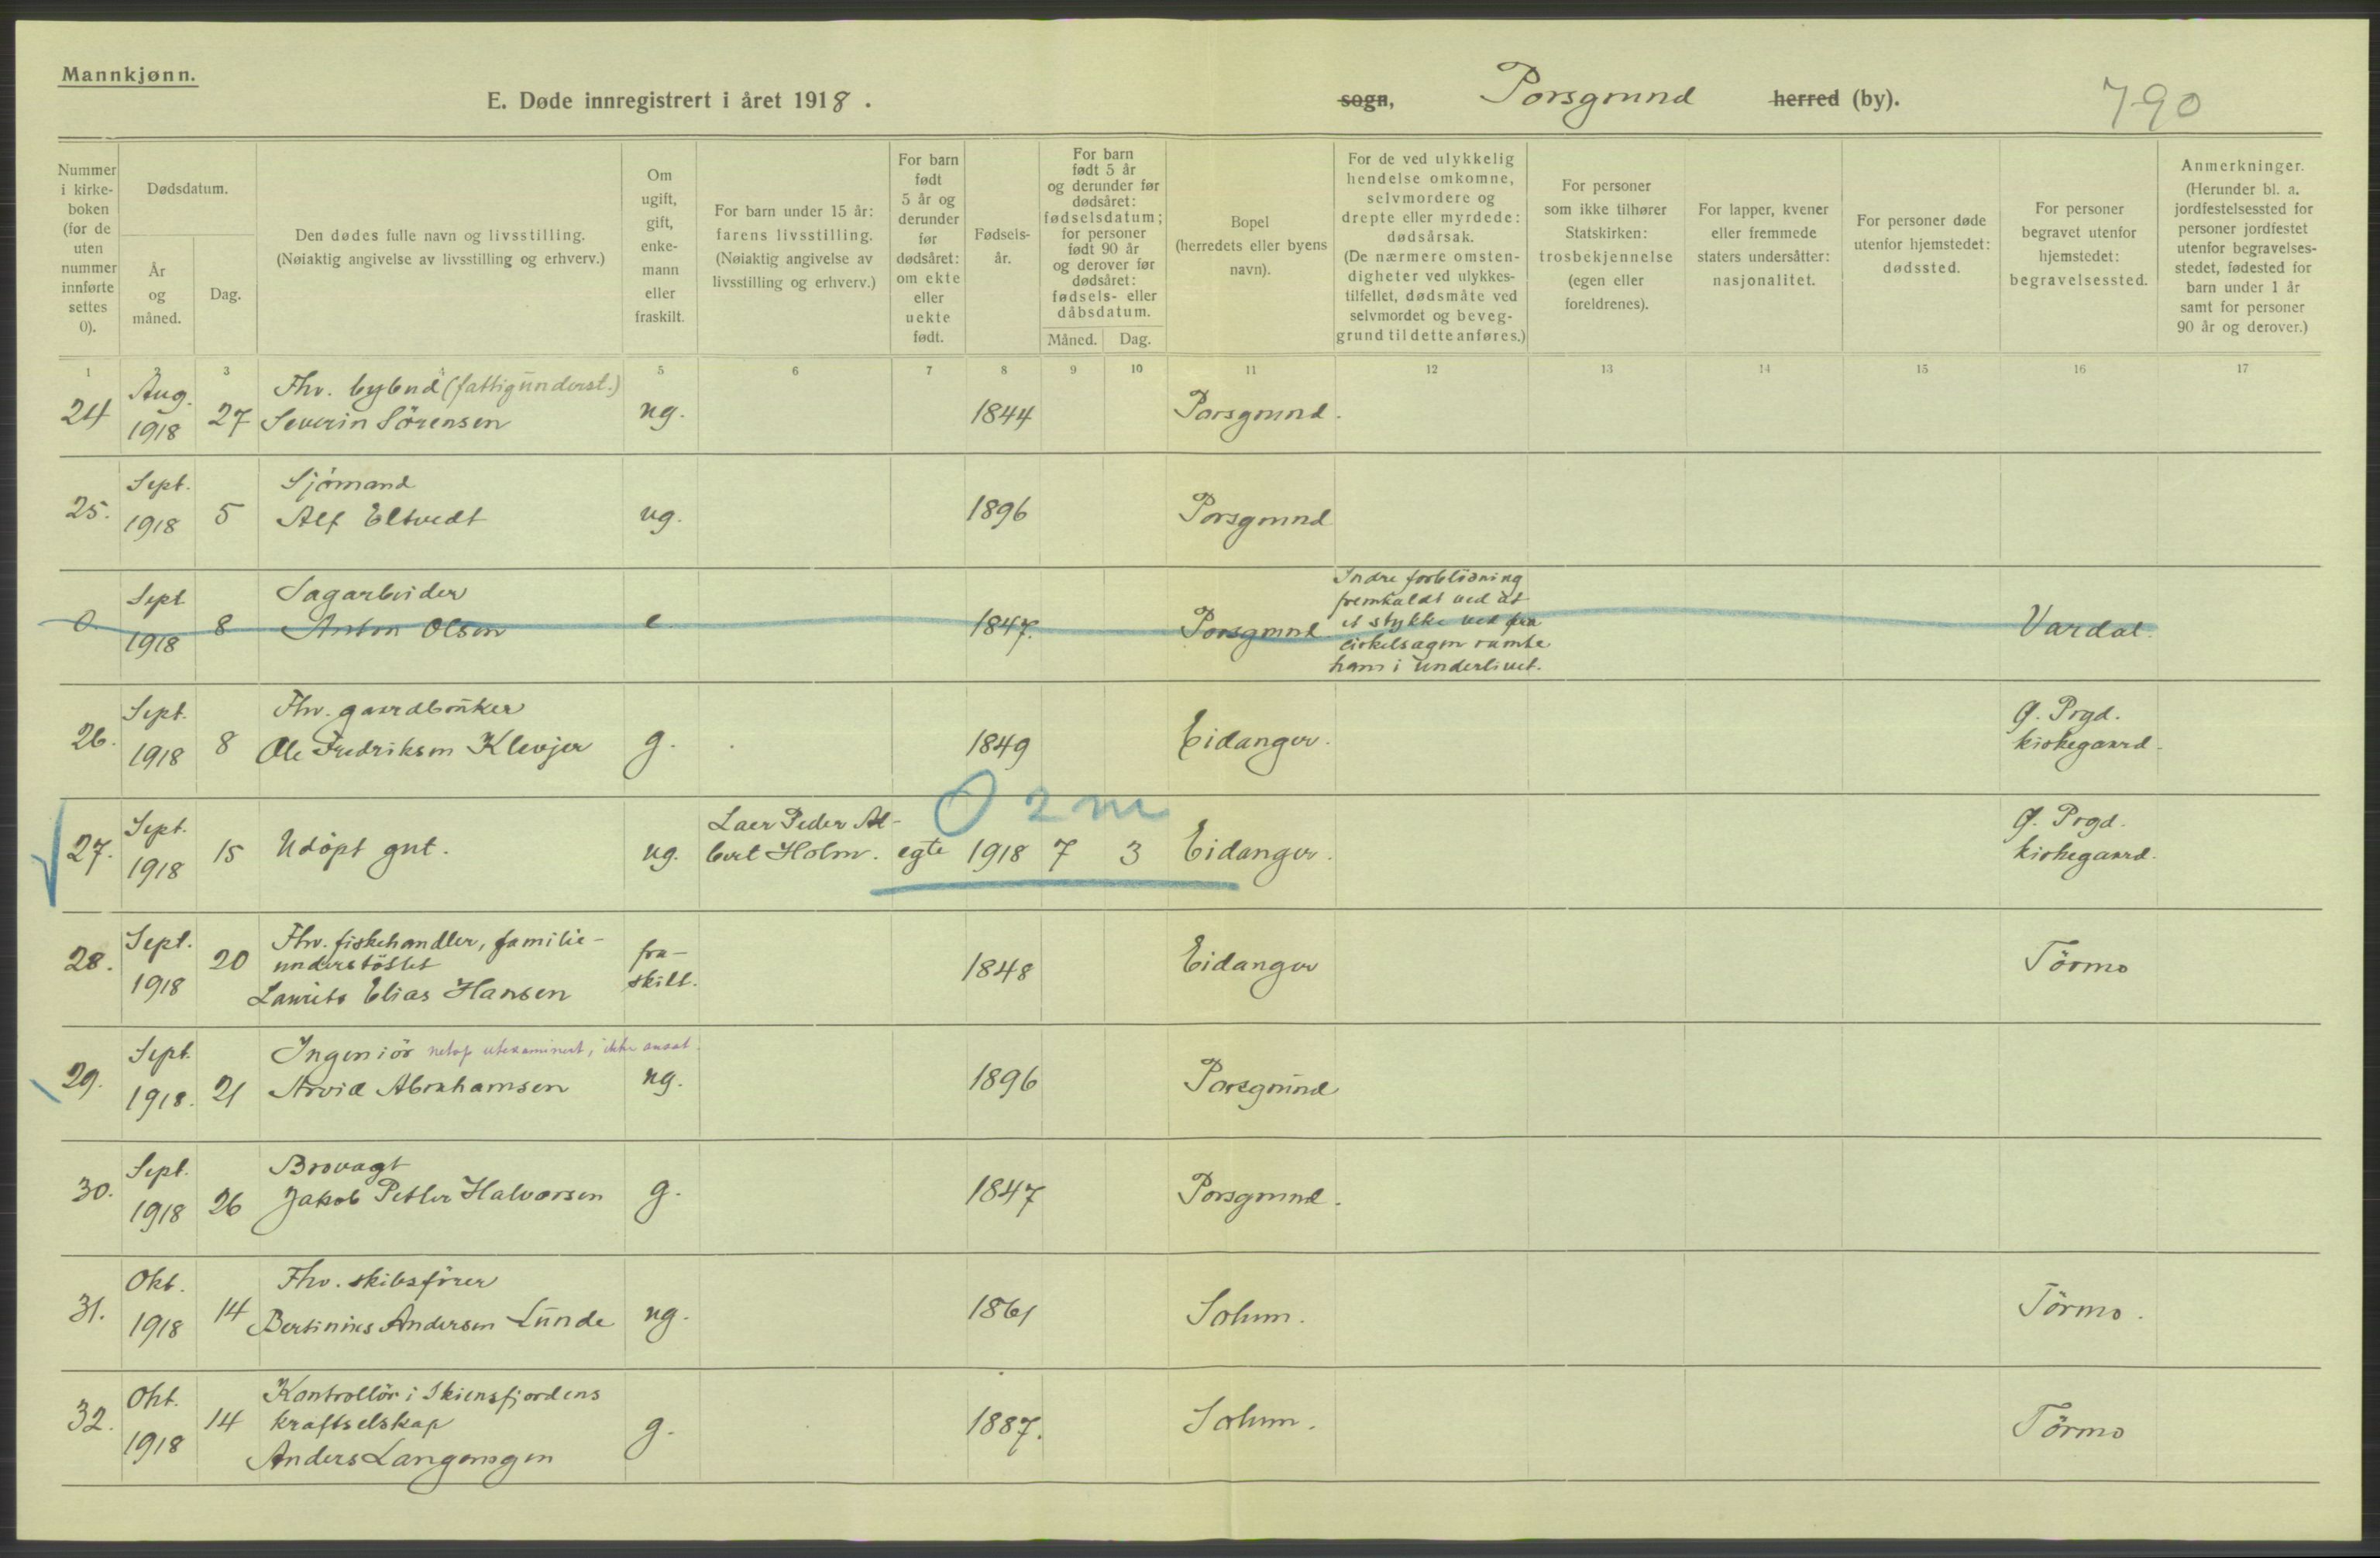 Mannkjønn.
E. Døde innregistrert i året 1918.
sogn, Porsgrund herred (by).
790
Nummer i kirkeboken (for de uten nummer innførte settes 0).
Dødsdatum.
År og måned.
Dag.
Den dødes fulle navn og livsstilling.
(Nøiaktig angivelse av livsstilling og erhverv.)
Om ugift, gift, enkemann eller fraskilt.
For barn under 15 år: farens livsstilling.
(Nøiaktig angivelse av livsstilling og erhverv.)
For barn født 5 år og derunder før dødsåret: om ekte eller uekte født.
Fødselsår.
For barn født 5 år og derunder før dødsåret: fødselsdatum; for personer født 90 år og derover før dødsåret: fødsels- eller dåbsdatum.
Måned. Dag.
Bopel (herredets eller byens navn).
For de ved ulykkelig hendelse omkomne, selvmordere og drepte eller myrdede: dødsårsak.
(De nærmere omstendigheter ved ulykkestilfellet, dødsmåte ved selvmordet og beveggrund til dette anføres.)
For personer som ikke tilhører Statskirken: trosbekjennelse (egen eller foreldrenes).
For lapper, kvener eller fremmede staters undersåtter: nasjonalitet.
For personer døde utenfor hjemstedet: dødssted.
For personer begravet utenfor hjemstedet: begravelsessted.
Anmerkninger.
(Herunder bl. a. jordfestelsessted for personer jordfestet utenfor begravelsesstedet, fødested for barn under 1 år samt for personer 90 år og derover.)
1 2 3 5 6 7 8 9 10 11 12 13 14 15 16 17
24 Aug. 1918 27 Fhv. bybud (fattigunderst.)
Severin Sörensen ug. 1844 Porsgrund.
25. Sept. 1918 5 Sjömand
Alf Eltvedt ug. 1896 Porsgrund
0. Sept 1918 8 Sagarbeider
Anton Olsen e 1847. Porsgrund.
Indre forblödning
fremkaldt ved at
et stykke ved fra
cirkelsagen ramte
ham i underlivet.
Vardal.
26. Sept. 1918 8 Fhv. gaardbruker
Ole Fredriksen Klevjer g. 1849 Eidanger.
G. Prgd.
kirkegaard.
0 2 m
27. Sept. 1918 15 Udöpt gut. ug.
Laer Peder Al-
bert Holm. egte 1918 7 3 Eidanger.
G. Prgd.
kirkegaard.
28. Sept. 1918 20 Fhv. fiskehandler, familie-
understöttet
Laurits Elias Hansen
fra-
skilt. 1848 Eidanger Törmo
29. Sept. 1918. 21 Ingeniör netop uteksaminert, ikke ansat.
Arvid Abrahamsen ug. 1896 Porsgrund
30. Sept. 1918 26 Brovagt
Jakob Petter Halvorsen g. 1847 Porsgrund.
31. Okt. 1918 14 Fhv. skibsförer
Bertinius Andersen Lunde ug. 1861 Solum. Törmo.
32. Okt. 1918 14 Kontrollör i Skiensfjordens
kraftselskap
Anders Langangen g. 1887. Solum. Törmo